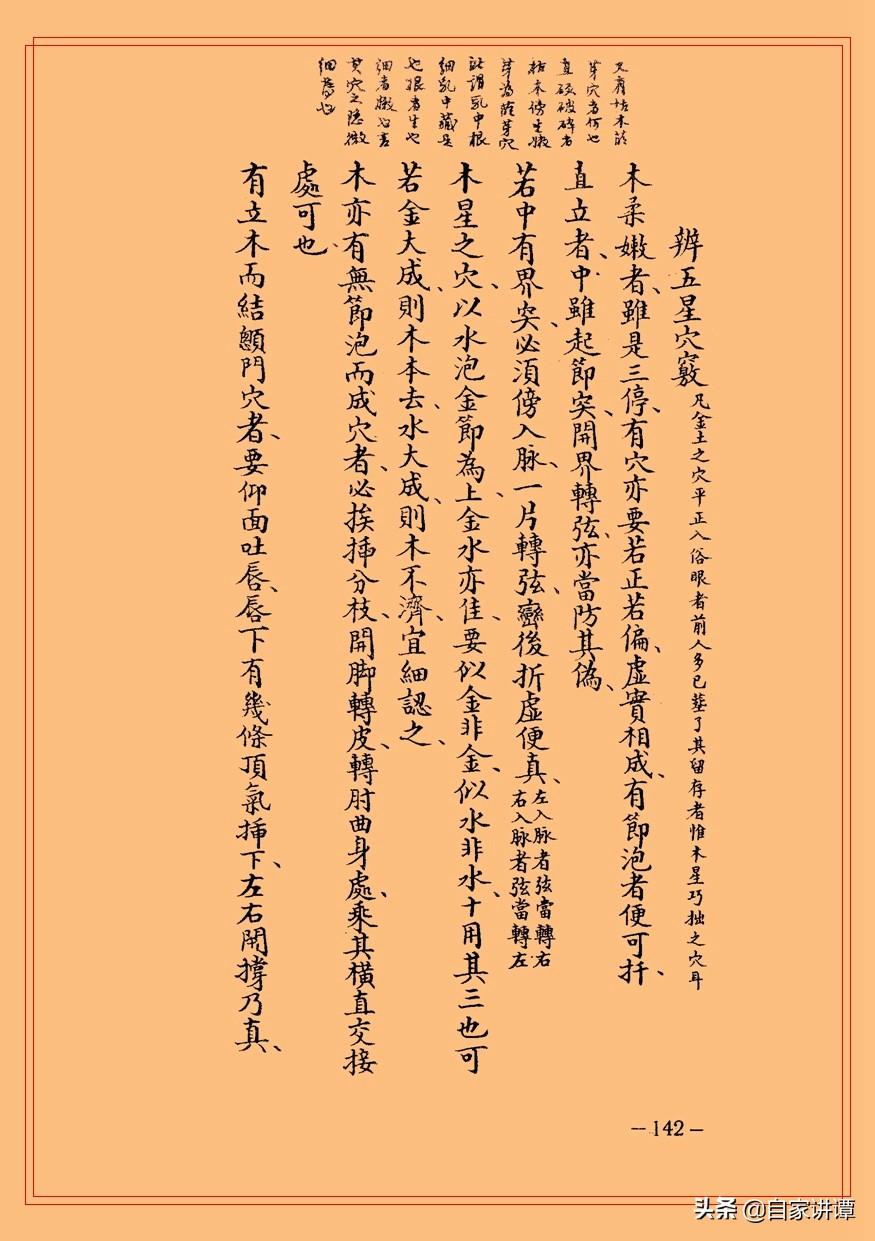 又有枯木
芽穴者何也
直硬破碎者
枯木傍生嫩
芽為
此謂乳中根
細乳中藏是
也根者生也
細者嫩也言
其穴之隱微
細
辨五星穴竅
凡金土之穴平正入俗眼者前人多已塟了其留存者惟木星巧拙之穴耳
木柔嫩者、雖是三停、有穴亦要若正若偏、虛實相成、有節泡者便可扦、
直立者、中雖起節突、開界轉弦、亦當防其偽、
若中有界突、必須傍入脉、一片轉弦、巒後折虛便真、
左入脉者弦當轉右
右入脉者弦當轉左
木星之穴、以水泡金節為上、金水亦佳、要似金非金、似水非水、十用其三也可
若金大成、則木本去、水大成、則木不濟、宜細認之、
木亦有無節泡而成穴者、必挨揷分枝、開脚轉皮、轉肘曲身處、乘其橫直交接
處可也、
有立木而結顖門穴者、要仰面吐唇、唇下有幾條頂氣揷下、左右開撐乃真、
—142—
头条 @自家讲谭